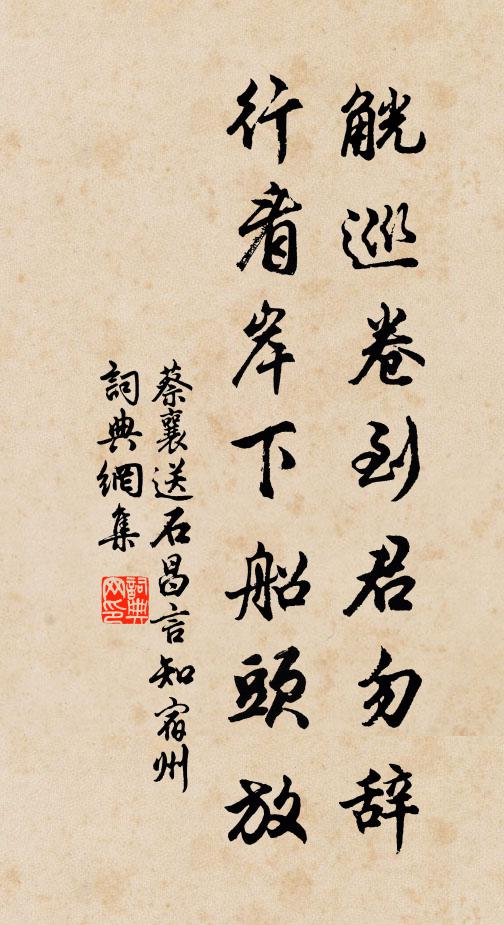 觥巡卷到君勿辞
行看岸下船頭放
蔡襄送石昌言知宿州
詞典網集
詞典
网印